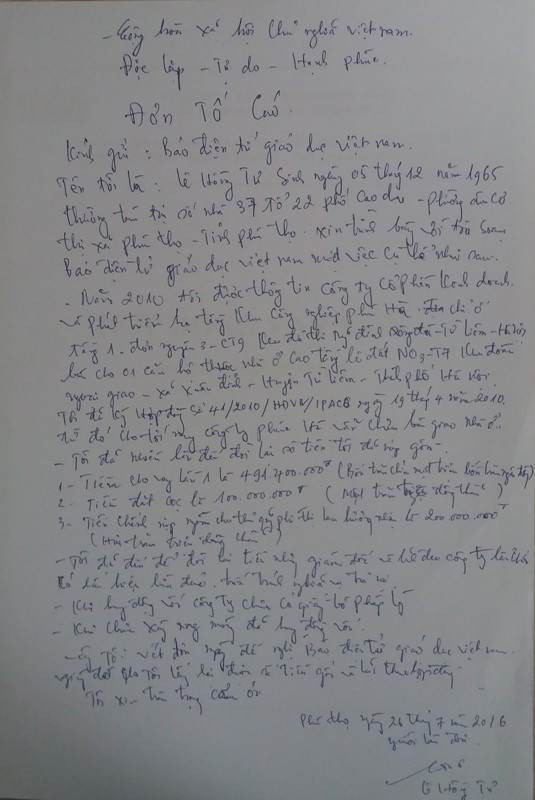 Cộng hòa xã hội Chủ nghĩa việt nam.
Độc lập - Tự do - Hạnh phúc.
Đơn Tố Cáo.
Kính gửi: Báo điện tử giáo dục việt nam.
Tên tôi là: Lê Hồng Tư Sinh ngày 05 tháng 12 năm 1965
thường trú tại số nhà 37 tổ 22 phố Cao du - phường âu cơ
thị xã phú thọ - Tỉnh phú thọ. xin trình bày với tòa soạn
Báo điện tử giáo dục việt nam một việc cụ thể như sau.
- Năm 2010 tôi được thông tin công ty cổ phần kinh doanh
và phát triển hạ tầng khu công nghiệp phúc Hà. địa chỉ ở
tầng 1. đơn nguyên 3 - CT9 khu đô thị Mỹ đình Sông đà - Từ liêm - Hà Nội
bán cho 01 căn hộ thuộc nhà ở Cao tầng lô đất NO3-T7 khu đoàn
ngoại giao - xã xuân đỉnh - Huyện Từ liêm - Thành phố Hà Nội.
Tôi đã ký Hợp đồng Số 41/2010/HĐVV/IPACB ngày 19 thg 4 năm 2010.
từ đó cho tới nay công ty phúc Hà vẫn chưa bàn giao nhà ở.
- Tôi đã nhiều lần đến đòi lại số tiền tôi đã góp gồm
1 - Tiền cho vay lần 1 là 491.400.000đ (Bốn trăm chín mươi mốt triệu bốn trăm ngàn đồng)
2. Tiền đặt cọc là 100.000.000đ (Một trăm triệu đồng)
3 - Tiền Chênh là 200.000.000đ
(Hai trăm triệu đồng)
- Tôi đã đến để đòi lại tiền giám đốc và lãnh đạo công ty
- Khi huy động vốn công ty chưa có giấy tờ pháp lý
- Khi chưa xây xong móng đã huy động vốn.
Tôi viết đơn này đề nghị Báo điện tử giáo dục việt nam.
giúp đỡ cho tôi lấy lại được số tiền
Tôi xin trân trọng cảm ơn
Phú thọ ngày 26 thg 7 năm 2016
người làm đơn.
Lê Hồng Tư